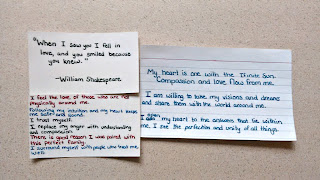 "When I saw you I fell in
love, and you smiled because
you knew."
~William Shakespeare
I feel the love of those who are not
physically around me.
Following my intuition and my heart keeps
me safe and sound.
I trust myself.
I replace my anger with understanding
and compassion.
There is good reason I was paired with
this perfect family.
I surround myself with people who treat me
well.
My heart is one with the Divine Sun.
Compassion and love flow from me.
I am willing to take my visions and dreams
and share them with the world around me.
I open my heart to the answers that lie within
me. I see the perfection and unity of all things.